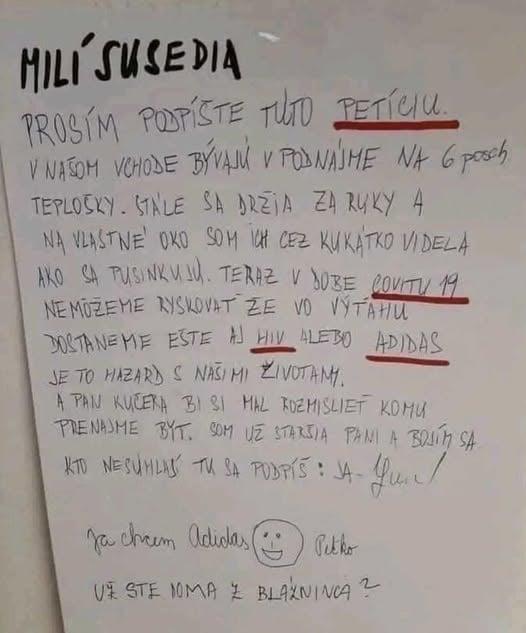 MILÍ SUSEDIA
PROSÍM PODPÍŠTE TÚTO PETÍCIU.
V NAŠOM VCHODE BÝVAJÚ V PODNÁJME NA 6 posch
TEPLOŠKY. STÁLE SA DRŽIA ZA RUKY A
NA VLASTNÉ OKO SOM ICH CEZ KUKÁTKO VIDELA
AKO SA PUSINKUJÚ. TERAZ V DOBE COVITU 19
NEMÔŽEME RYSKOVAŤ ŽE VO VÝŤAHU
DOSTANEME EŠTE AJ HIV ALEBO ADIDAS
JE TO HAZARD S NAŠIMI ŽIVOTAMY.
A PAN KUČERA BI SI MAL ROZMISLIEŤ KOMU
PRENAJME BYT. SOM UŽ STARŠIA PANI A BOJÍM SA
KTO NESÚHLASÍ TU SA PODPÍŠ: JA-
Ja chcem Adidas Petko
UŽ STE DOMA Z BLÁZNINCA?